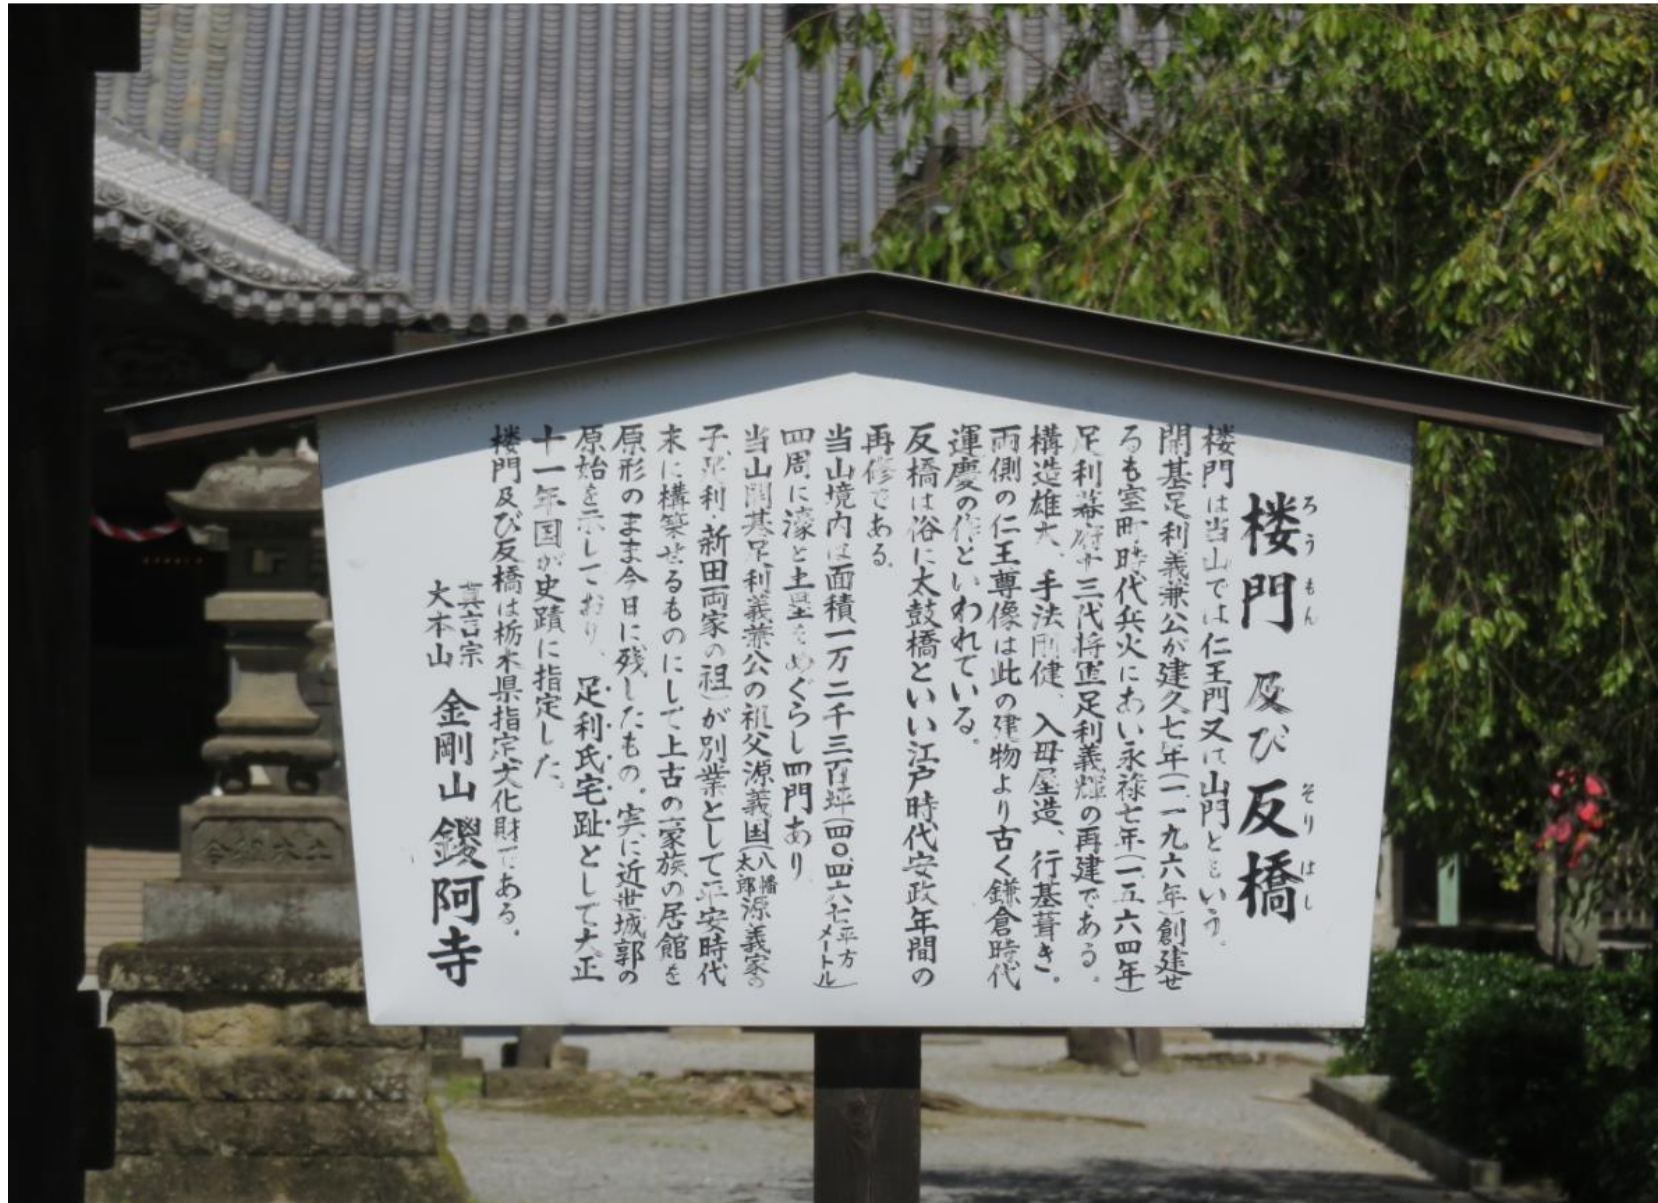 楼門 及び 反橋
ろうもん そりはし
楼門は当山では仁王門又は山門ともいう。
開基足利義兼公が建久七年(一一九六年)創建せ
るも室町時代兵火にあい永禄七年(一五六四年)
足利幕府十三代将軍足利義輝の再建である。
構造雄大、手法剛健、入母屋造、行基葺き。
両側の仁王尊像は此の建物より古く鎌倉時代
運慶の作といわれている。
反橋は俗に太鼓橋といい江戸時代安政年間の
再修である。
当山境内は面積一万二千三百坪(四〇、四六七平方メートル)
四周に濠と土塁をめぐらし四門あり
当山開基足利義兼公の祖父源義国(八幡太郎源義家の
子、足利・新田両家の祖)が別業として平安時代
末に構築せるものにして上古の豪族の居館を
原形のまま今日に残したもの。実に近世城郭の
原始を示しており、足利氏宅趾として大正
十一年国が史蹟に指定した。
楼門及び反橋は栃木県指定文化財である。
真言宗
大本山 金剛山 鑁阿寺